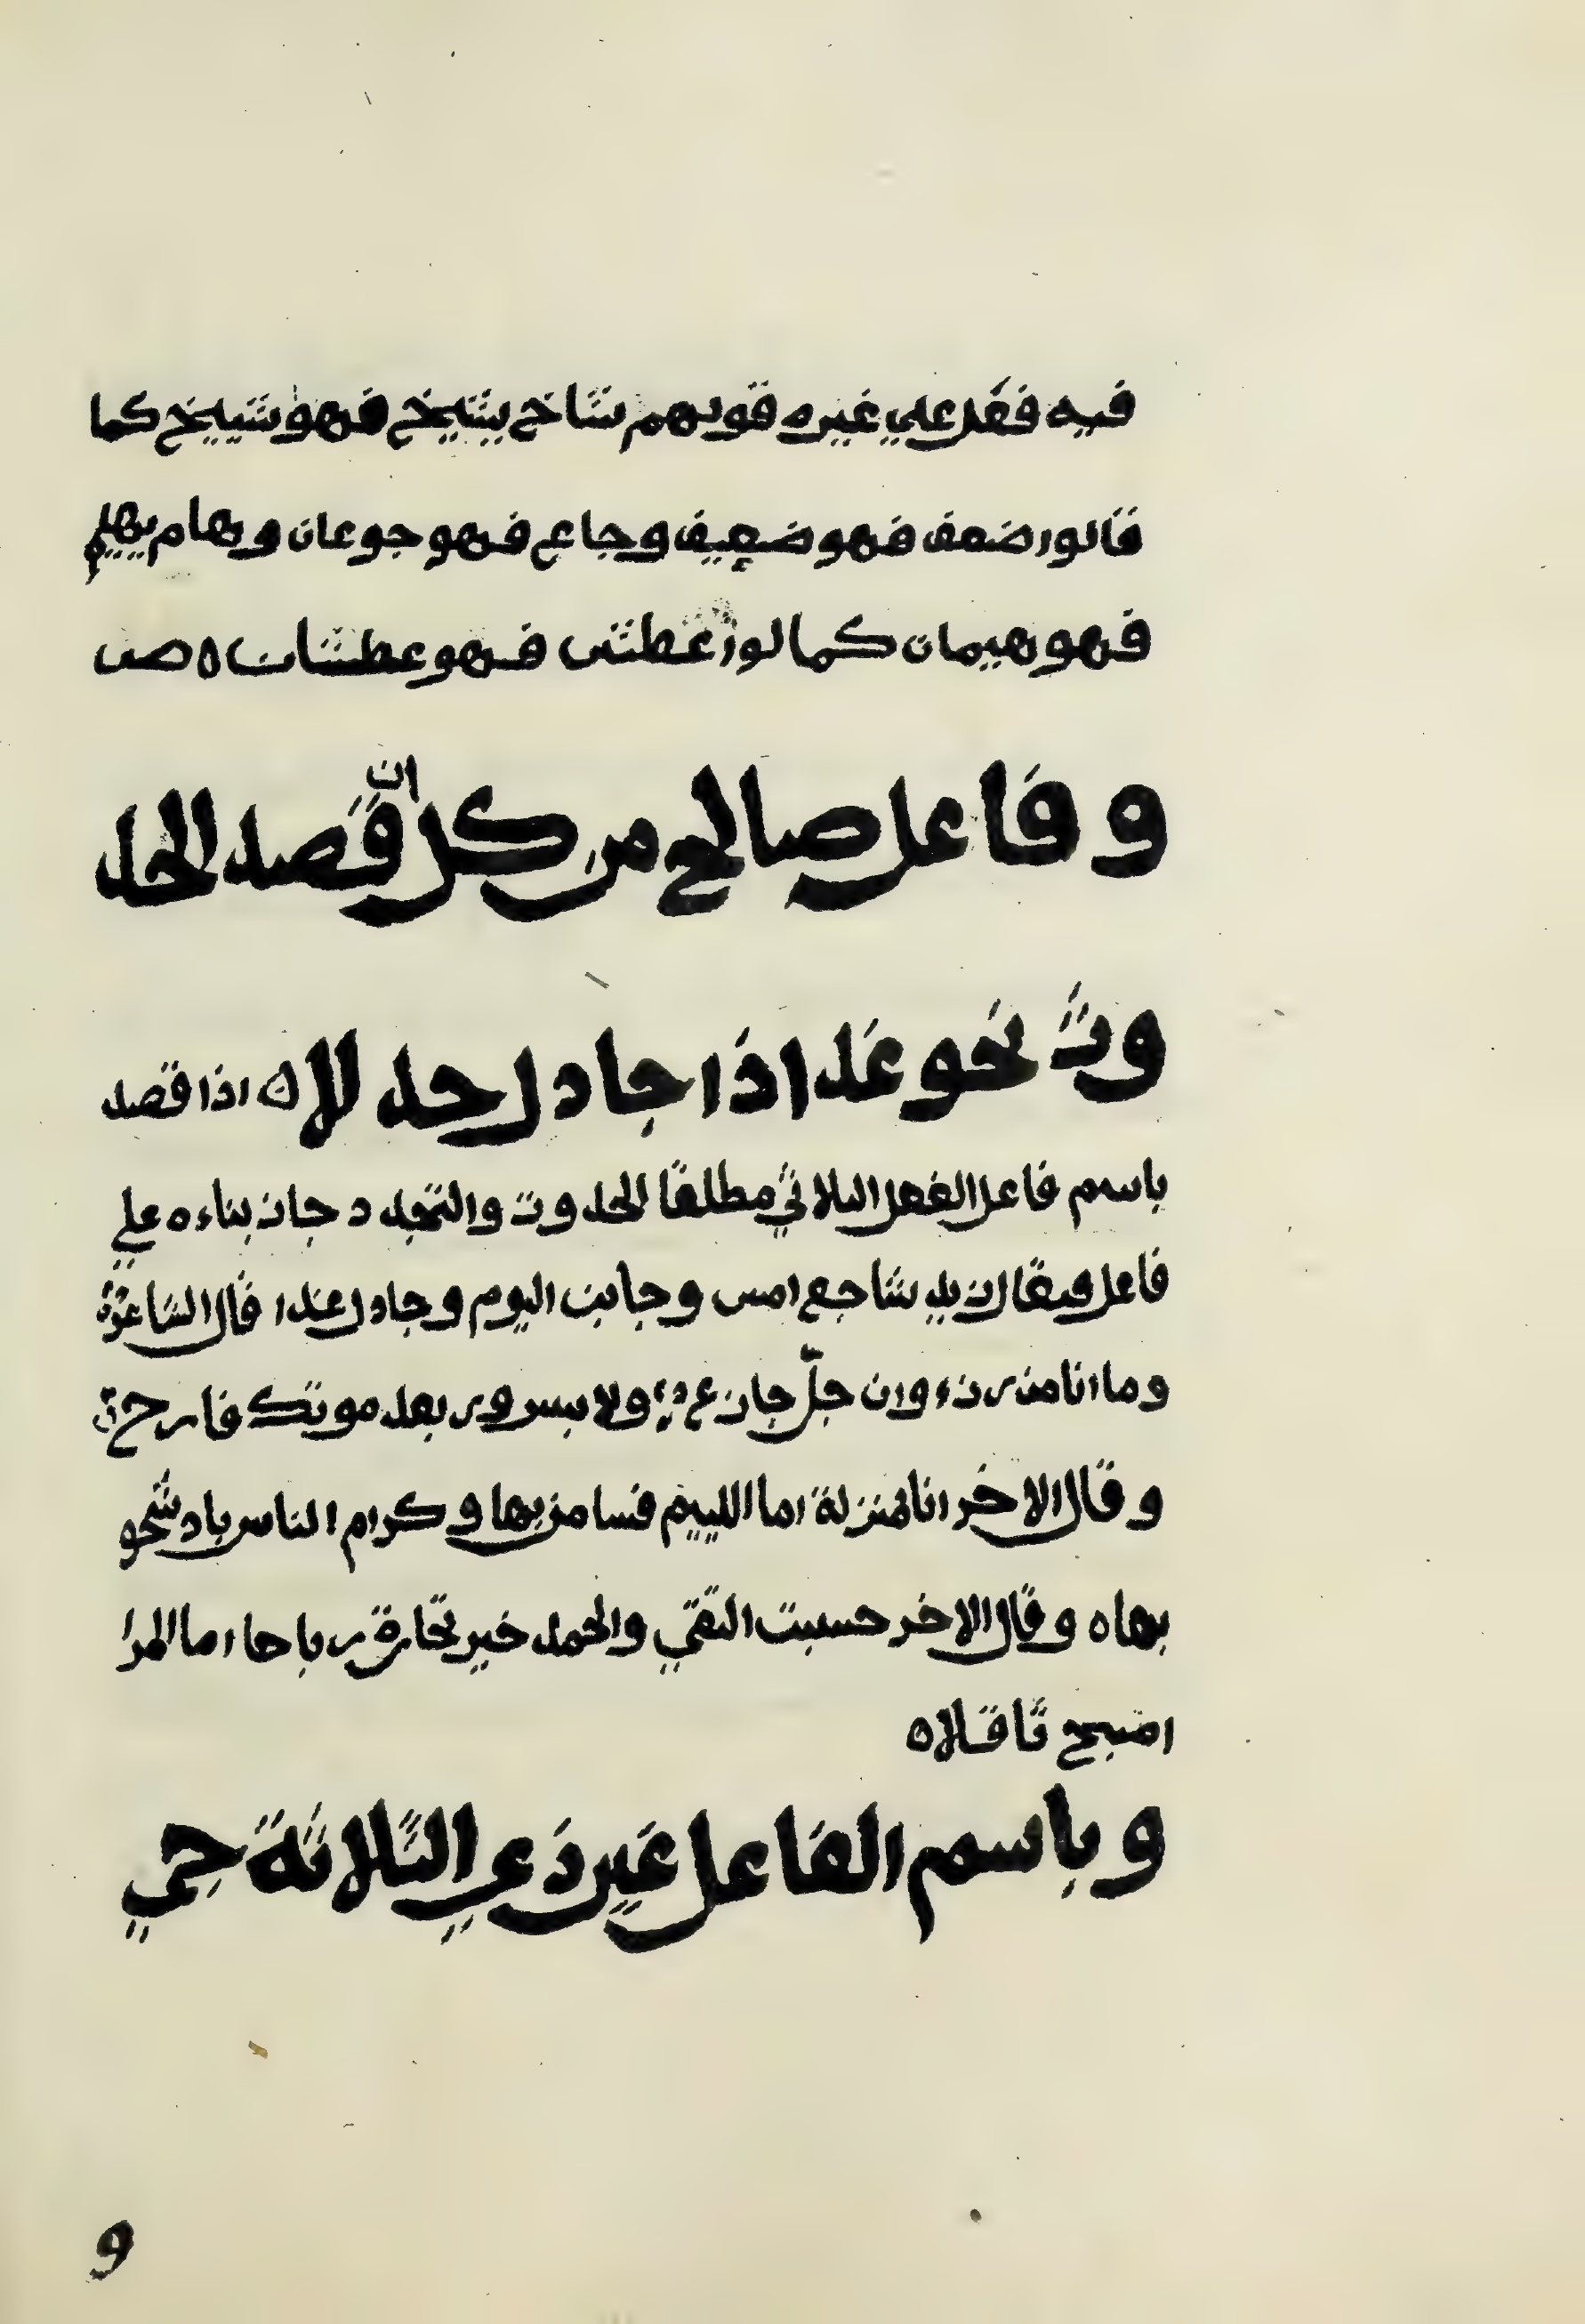 فيه فقل علي غيره قولهم شاخ يشيخ فهو شييخ كما
قالوا ضعف فهو ضعيف وجاع فهو جوعان وهام يهيم
فهو هيمان كما لوا عطش فهو عطشان ه ص
وفاعل صالح من كل ان قصد الحد
وث نحو غدا ذا جاذل جدلا ن اذا قصد
باسم فاعل الفعل الثلاثي مطلقا الحدوث والتجدد جاز بناءه علي
فاعل فيقال زيد شاجع امس وجابن اليوم وجاذل غدا قال الشاعر
وما انا من رزء وان جل جازع ولا بسرور بعد موتك فارح
وقال الاخر انا لمنزلة اما اللييم فسامن بها وكرام الناس باد شحو
بها ه وقال الاخر حسبت التقي والحمد خير تجارة رباحا اما المرا
اصبح ثاقلا ه
وباسم الفاعل غير ذي الثلاثة جي
و